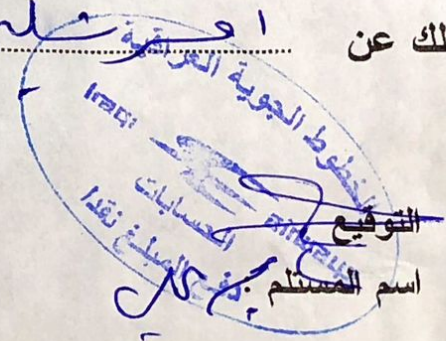 لك عن
الخطوط الجوية العراقية
Iraqi Airways
الحسابات
دفع المبلغ نقدا
التوقيع
اسم المستلم :